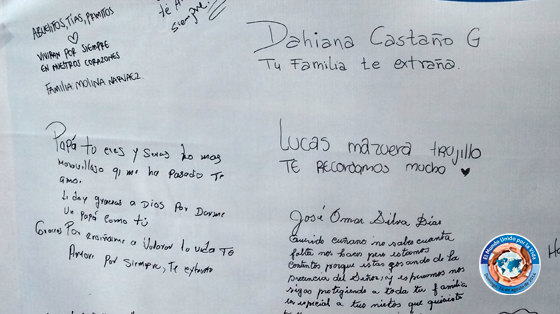 te A
siempre!
ABUELITOS, TIAS, PRIMITOS
VIVIRAN POR SIEMPRE
EN NUESTROS CORAZONES
FAMILIA MOLINA NARVAEZ.
Dahiana Castaño G
Tu Familia te extraña.
Papá tu eres y seras lo mas
maravilloso q' me ha pasado Te
amo.
Le doy gracias a Dios Por Darme
Un Papá como tú
Gracias Por enseñarme a Valorar la vida TE
Amaré Por Siempre, Te extraño
Lucas mazuera trujillo
TE RECORDAMOS mucho
José Omar Silva Dias
Querido cuñado no sabes cuanta
falta nos haces pero estamos
contentos porque estas gosando de la
precencia del Señor, y esperamos nos
sigas protigiendo a toda tu familia
en especial a tus nietos que quisiste
El Mundo Unido por la Vida